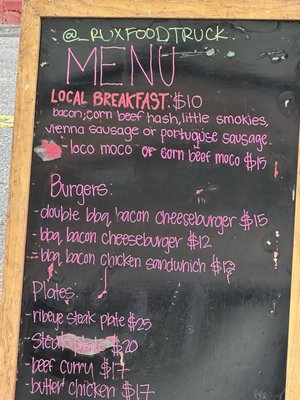 @_RUXFOODTRUCK
MENU
LOCAL BREAKFAST: $10
bacon, corn beef hash, little smokies,
vienna sausage or portuguse sausage.
- loco moco or corn beef moco $15
Burgers:
- double bbq bacon cheeseburger $15
- bbq bacon cheeseburger $12
- bbq bacon chicken sandwhich $13
Plates:
- ribeye steak plate $25
- steak plate $20
- beef curry $17
- butter chicken $17